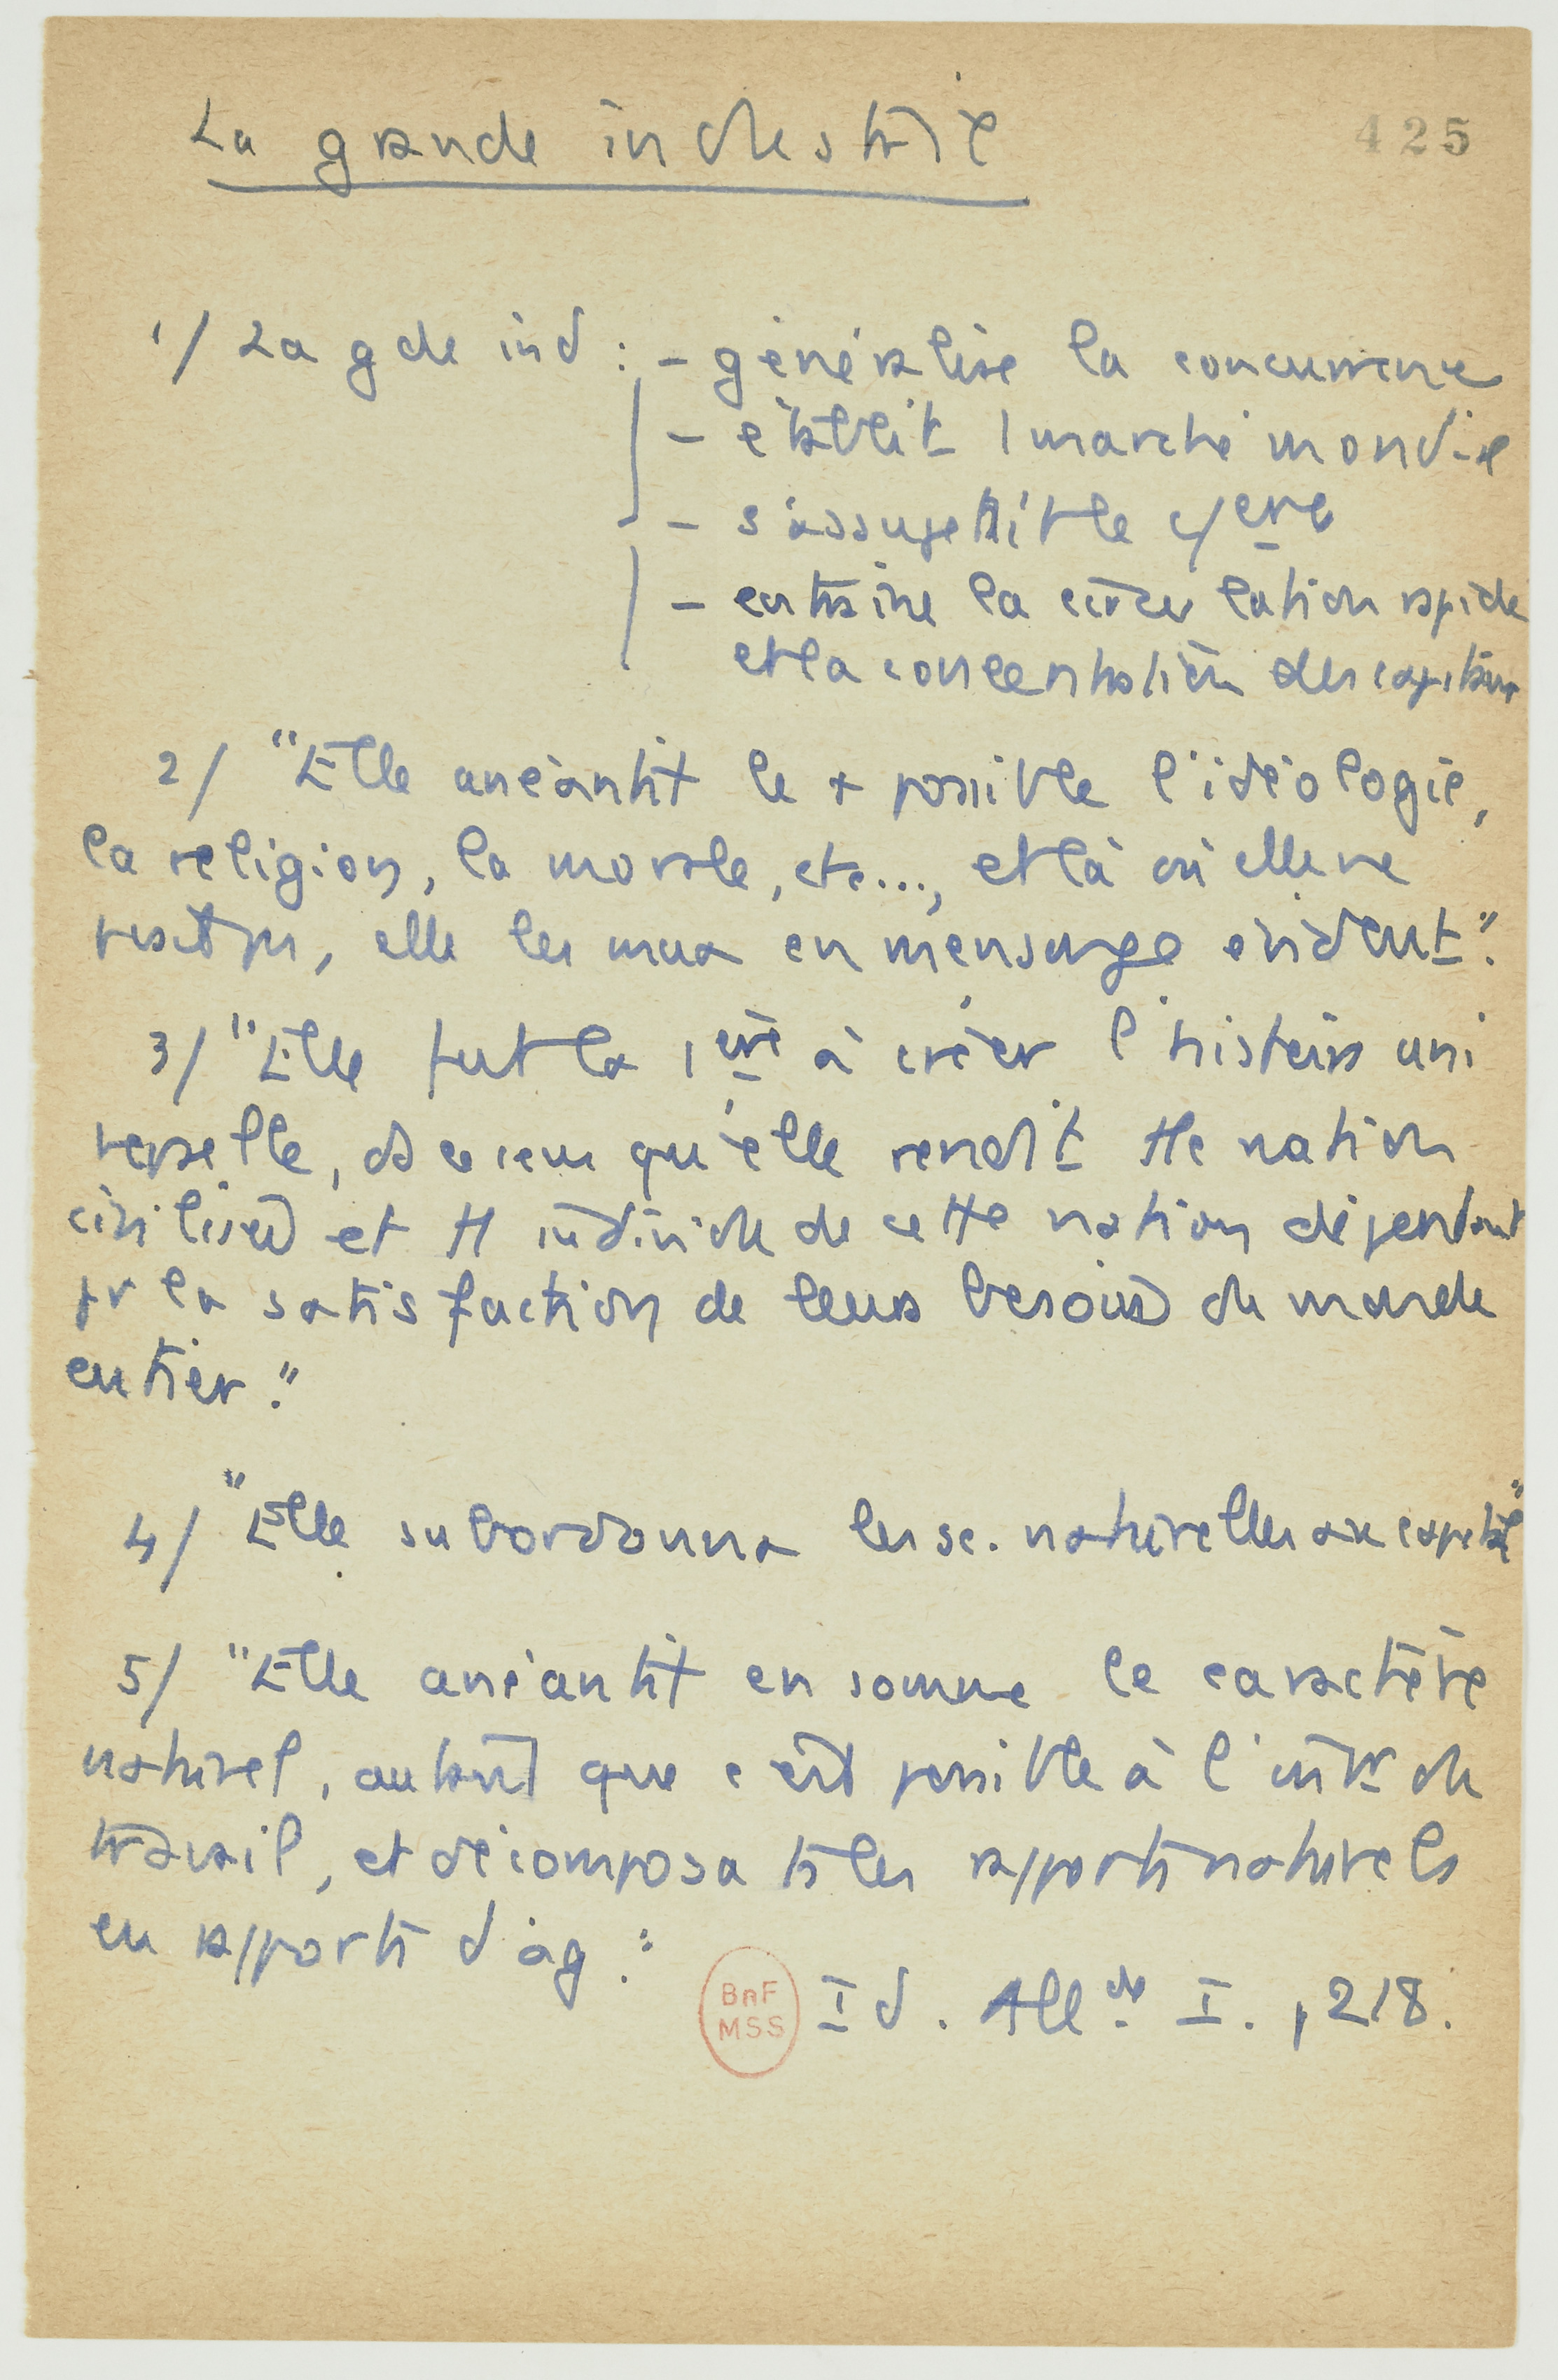 La grande industrie
425
1/ La gde ind : - généralise la concurrence
- établit 1 marché mondial
- s'assujettit le c/erce
- entraîne la circulation rapide
et la concentration des capitaux
2/ "Elle anéantit le + possible l'idéologie,
la religion, la morale, etc..., et là où elle ne
put pas, elle les mua en mensonge évident".
3/ "Elle fut la 1ère à créer l'histoire uni
verselle, ds ce sens qu'elle rendit tte nation
civilisée et tt individu de cette nation dépendant
pr la satisfaction de leurs besoins du monde
entier."
4/ "Elle subordonna les sc. naturelles au capital"
5/ "Elle anéantit en somme le caractère
naturel, autant que c'est possible à l'intr du
travail, et décomposa ts les rapports naturels
en rapports d'arg."
BnF
MSS
Id. Allde I. p 218.